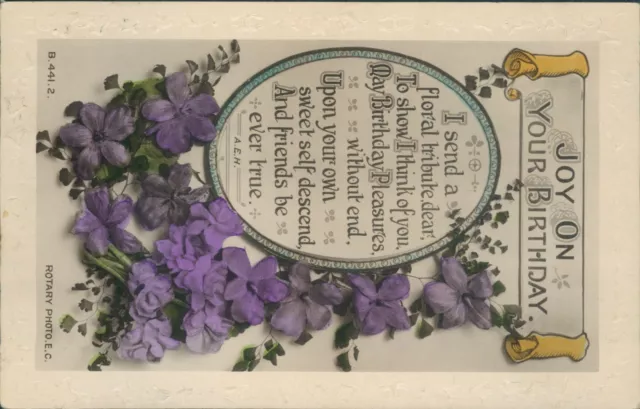 JOY ON
YOUR BIRTHDAY.
I send a
floral tribute, dear!
To show I think of you,
May Birthday Pleasures,
without end,
Upon your own
sweet self descend,
And friends be
ever true
A.E.H.
B.441.2.
ROTARY PHOTO. E.C.